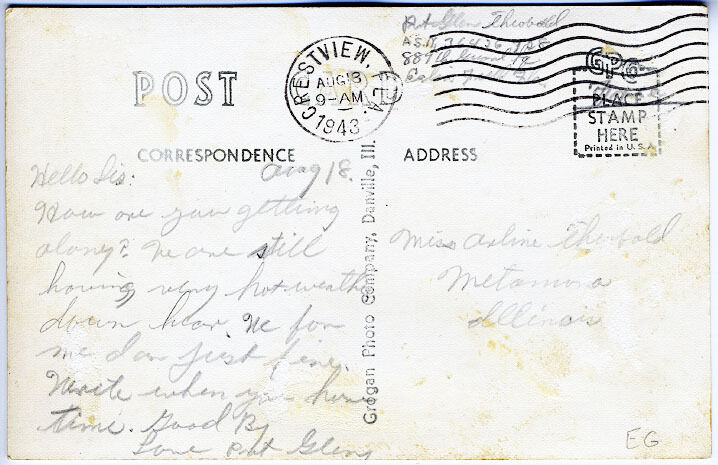 Pvt Glen Theobald
A.S.N.
CRESTVIEW, FLA.
AUG 18
9-AM
1943
POST
GPC
PLACE
STAMP
HERE
Printed in U.S.A.
CORRESPONDENCE
ADDRESS
Aug 18.
Hello Sis:
How are you getting
along? We are still
having very hot weather
down hear. We for
me I am just fine.
Write when you have
time. Good By
Love Pvt Glenn
Grogan Photo Company, Danville, Ill.
Miss Arline Theobald
Metamora
Illinois
EG